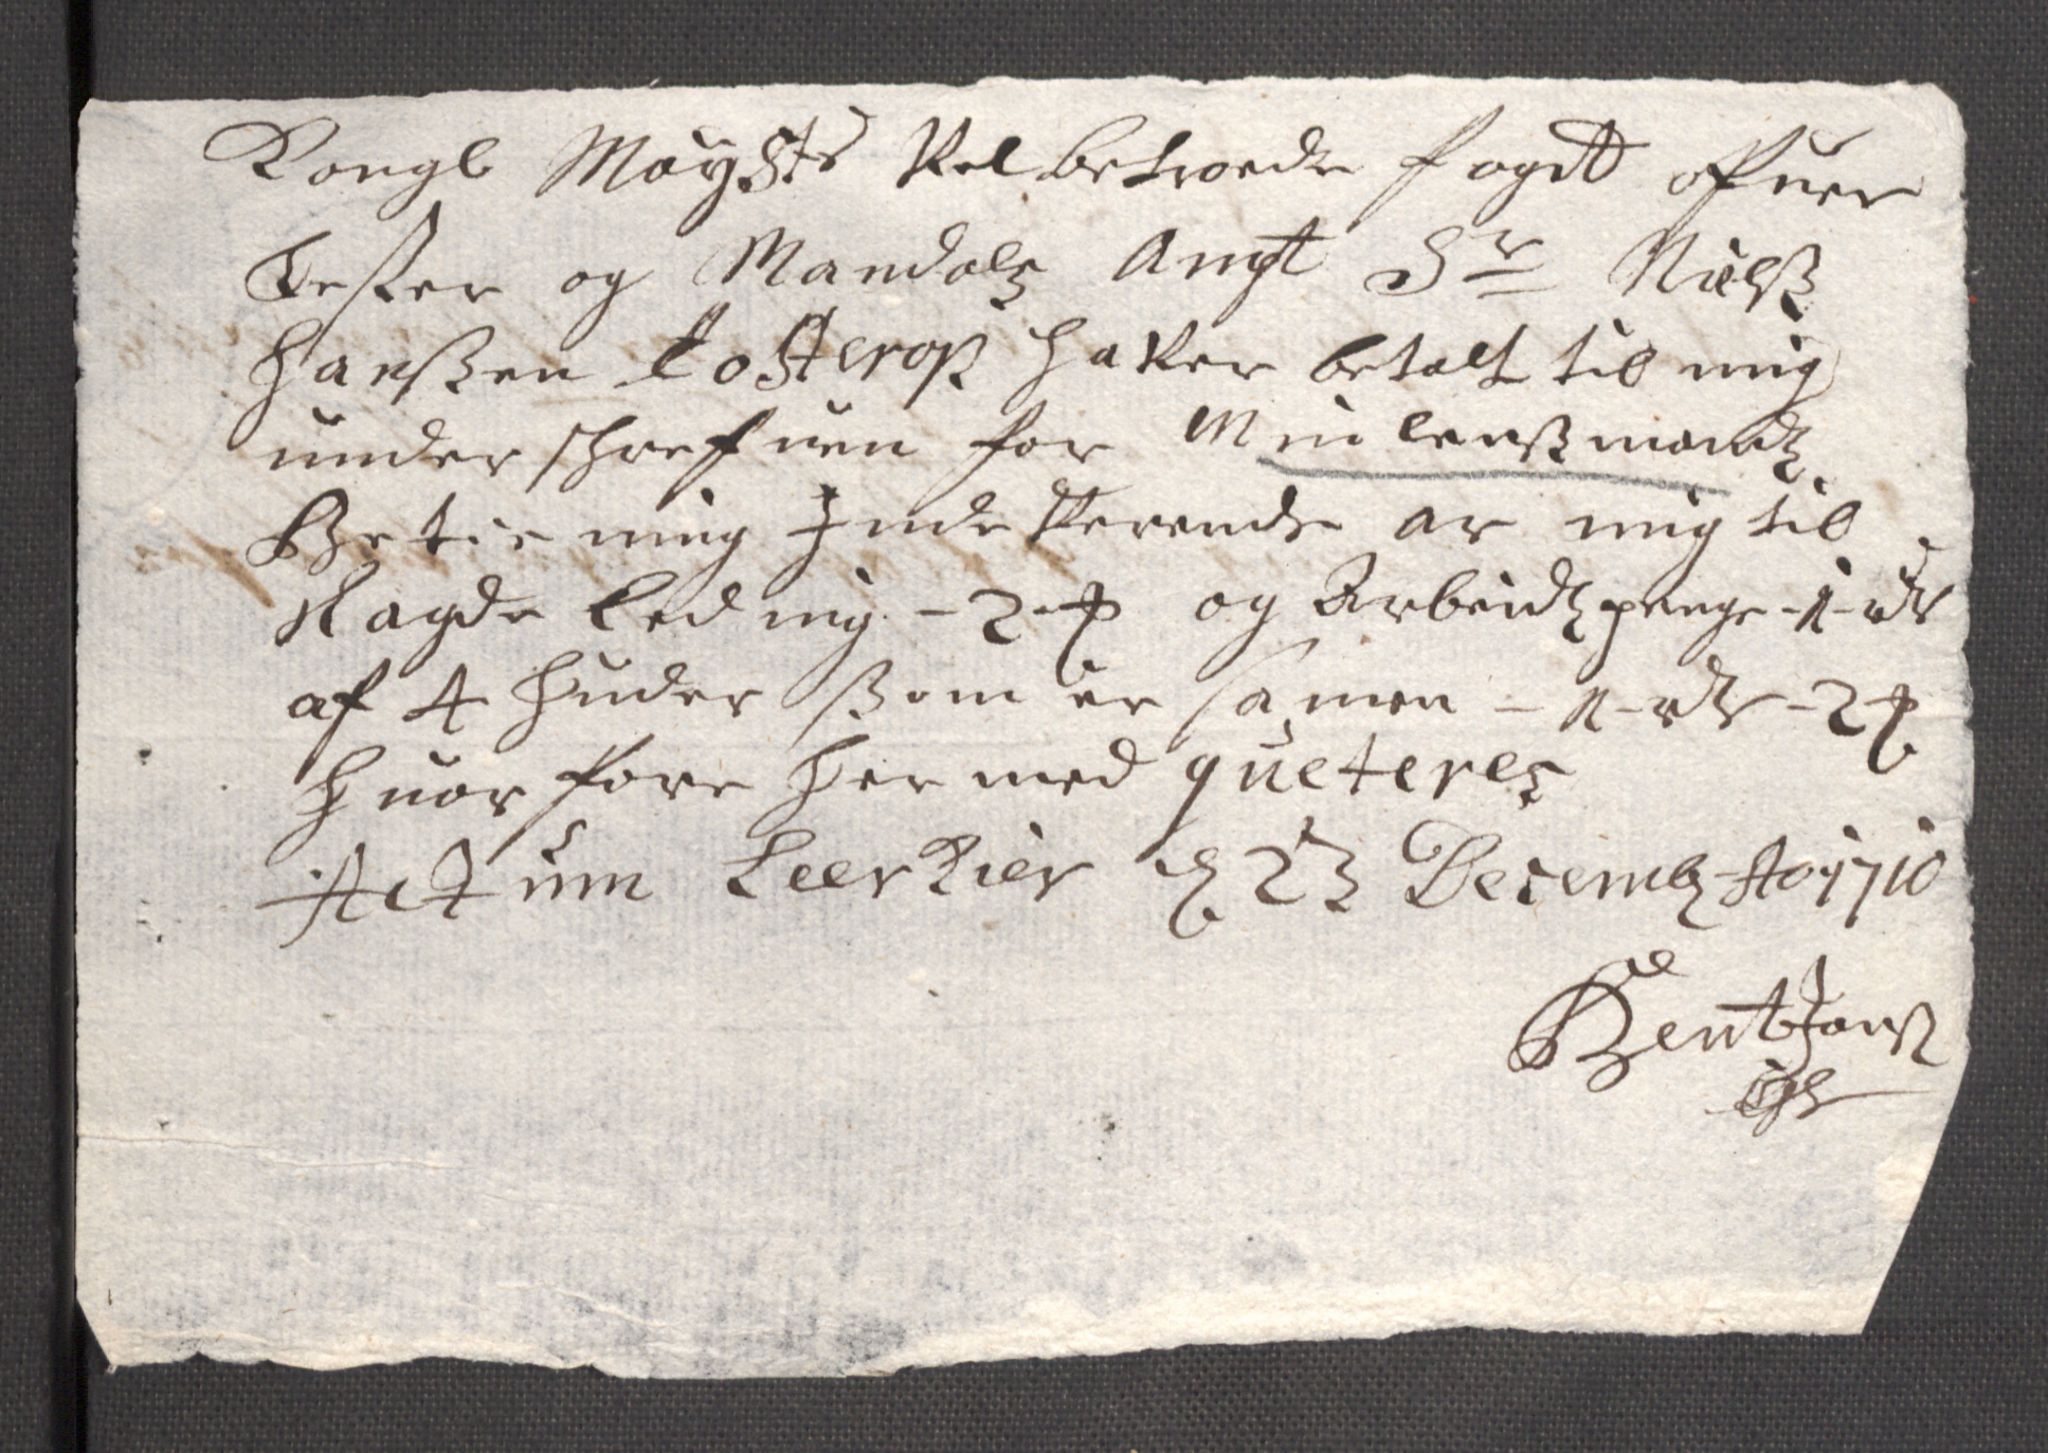 Kongl Mayßts Vel betroede fogit offuer
Lester og Mandalß Ampt Sr Nielß
Hanßen Tosterop haver betalt til mig
underschrefuen for Min lenßmandß
Betiening Inde Verende ar mig til
lagde Leding - 2 ₰ og Arbeidß penge - 1 - rdr
af 4 huder ßom er samen - 1 - rdr - 2 ₰
Huorfore Her med queteres
Actum Leervier d 23 Decembr Ao 1710
Bent Jonß